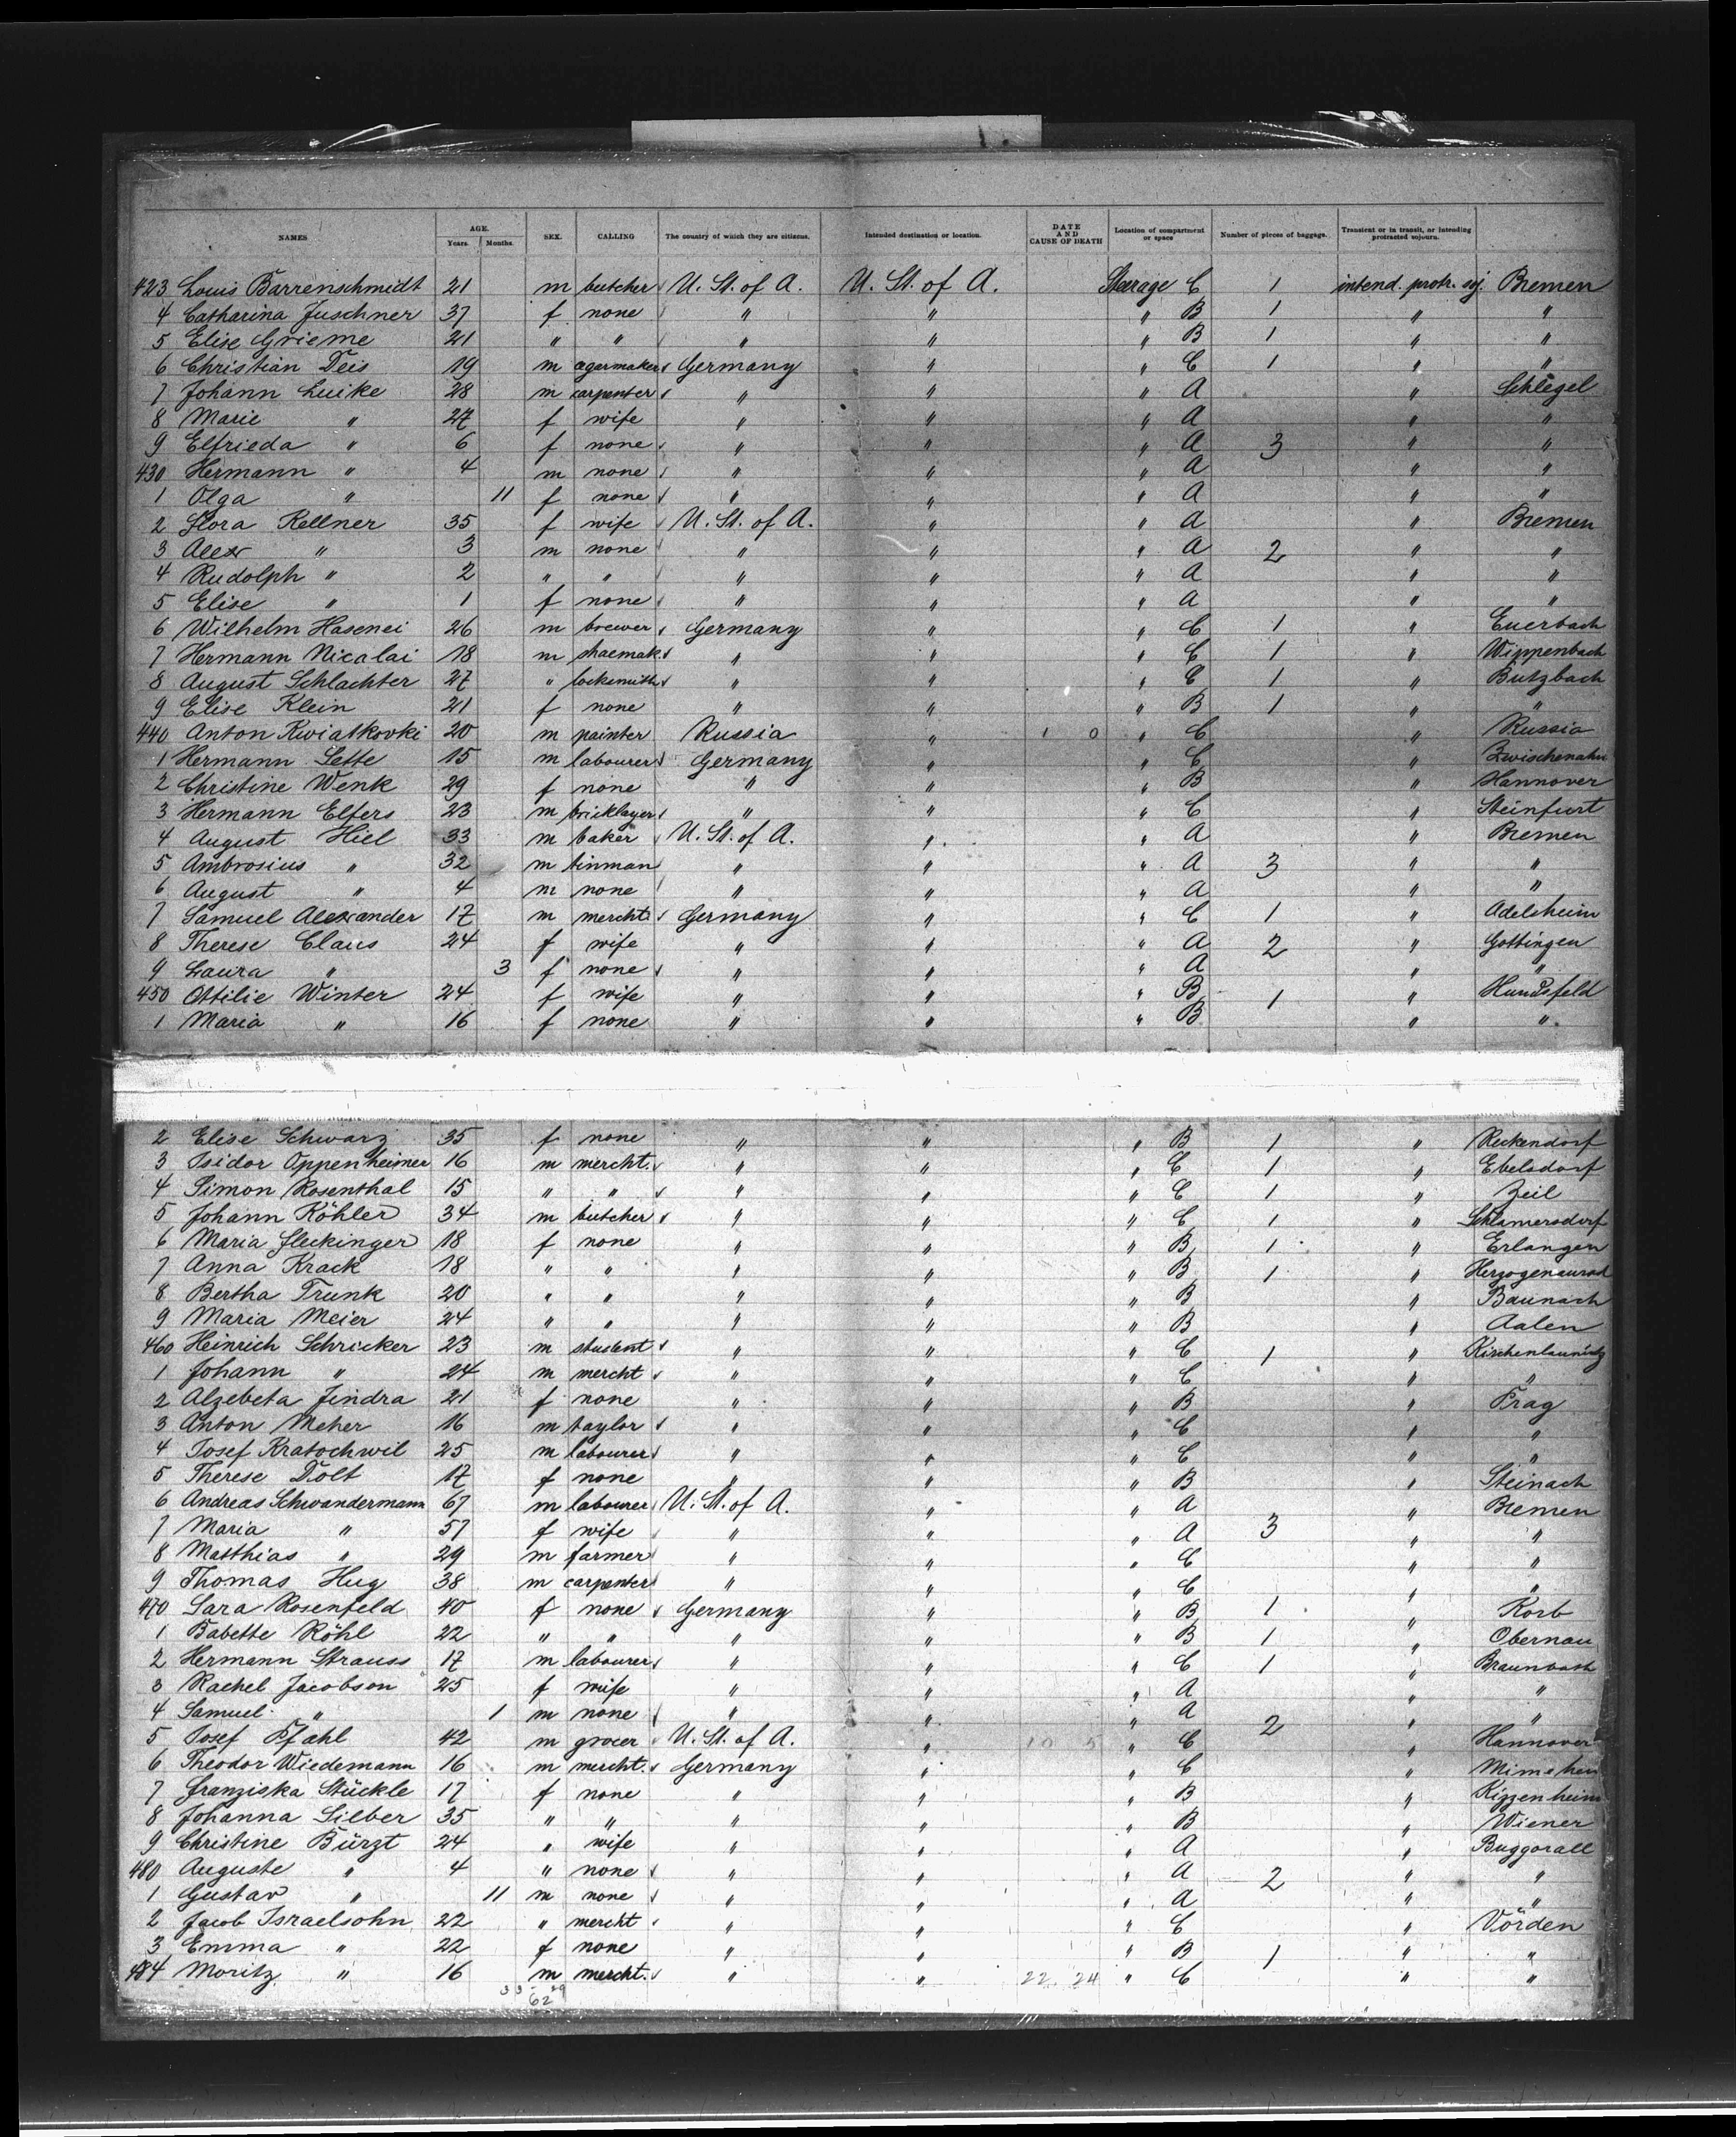 NAMES AGE. Years. Months. SEX. CALLING The country of which they are citizens. Intended destination or location. DATE AND CAUSE OF DEATH Location of compartment or space Number of pieces of baggage. Transient or in transit, or intending protracted sojourn.
423 Louis Barrenschmidt 21 m butcher U. St. of A. U. St. of A. Steerage C 1 intend. protr. soj. Bremen
4 Catharina Juschner 37 f none " " " B 1 " "
5 Elise Grieme 21 " " " " " B 1 " "
6 Christian Deis 19 m cigarmaker Germany " " C 1 " "
7 Johann Luike 28 m carpenter " " " A " Schlegel
8 Marie " 27 f wife " " " A " "
9 Elfrieda " 6 f none " " " A 3 " "
430 Hermann " 4 m none " " " A " "
1 Olga " 11 f none " " " A " "
2 Flora Kellner 35 f wife U. St. of A. " " A " Bremen
3 Alex " 3 m none " " " A 2 " "
4 Rudolph " 2 " " " " " A " "
5 Elise " 1 f none " " " A " "
6 Wilhelm Hasenei 26 m brewer Germany " " C 1 " Euerbach
7 Hermann Nicalai 18 m shaemak " " " C 1 " Wippenbach
8 August Schlachter 27 " locksmith " " " C 1 " Butzbach
9 Elise Klein 21 f none " " " B 1 " "
440 Anton Kwiatkovki 20 m painter Russia " 1 0 " C " Russia
1 Hermann Lette 15 m labourer Germany " " C " Zwischenahn
2 Christine Wenk 29 f none " " " B " Hannover
3 Hermann Elfers 23 m bricklayer " " " C " Steinfurt
4 August Hiel 33 m baker U. St. of A. " " A " Bremen
5 Ambrosius " 32 m tinman " " " A 3 " "
6 August " 4 m none " " " A " "
7 Samuel Alexander 17 m mercht. Germany " " C 1 " Adelsheim
8 Therese Claus 24 f wife " " " A 2 " Gottingen
9 Laura " 3 f none " " " A " "
450 Ottilie Winter 24 f wife " " " B 1 " Hundsfeld
1 Maria " 16 f none " " " B " "
2 Elise Schwarz 35 f none " " " B 1 " Reckendorf
3 Isidor Oppenheimer 16 m mercht. " " " C 1 " Ebelsdorf
4 Simon Rosenthal 15 " " " " " C 1 " Zeil
5 Johann Köhler 34 m butcher " " " C 1 " Schlamersdorf
6 Maria Fleckinger 18 f none " " " B 1 " Erlangen
7 Anna Krack 18 " " " " " B 1 " Herzogenaurad
8 Bertha Trunk 20 " " " " " B " Baunach
9 Maria Meier 24 " " " " " B " Aalen
460 Heinrich Schricker 23 m student " " " C 1 " Kirchenlaunitz
1 Johann " 24 m mercht " " " C " "
2 Alzebeta Jindra 21 f none " " " B " Prag
3 Anton Meher 16 m taylor " " " C " "
4 Josef Kratochwil 25 m labourer " " " C " "
5 Therese Dolt 17 f none " " " B " Steinach
6 Andreas Schwandermann 67 m labourer U. St. of A. " " A " Bremen
7 Maria " 57 f wife " " " A 3 " "
8 Matthias " 29 m farmer " " " C " "
9 Thomas Hug 38 m carpenter " " " C " "
470 Sara Rosenfeld 40 f none Germany " " B 1 " Korb
1 Babette Röhl 22 " " " " " B 1 " Obernau
2 Hermann Strauss 17 m labourer " " " C 1 " Braunbach
3 Rachel Jacobson 25 f wife " " " A " "
4 Samuel " 1 m none " " " A 2 " "
5 Josef Pfahl 42 m grocer U. St. of A. " 10 5 " C " Hannover
6 Theodor Wiedemann 16 m mercht. Germany " " C "
7 Franziska Stückle 17 f none " " " B " Kizzenheim
8 Johanna Silber 35 " " " " " B " Wiener
9 Christine Bürzt 24 " wife " " " A " Buggorall
480 Auguste " 4 " none " " " A 2 " "
1 Gustav " 11 m none " " " A " "
2 Jacob Israelsohn 22 " mercht " " " C " Vörden
3 Emma " 22 f none " " " B 1 " "
484 Moritz " 16 m mercht. " " 22 24 " C " "
33 29
62